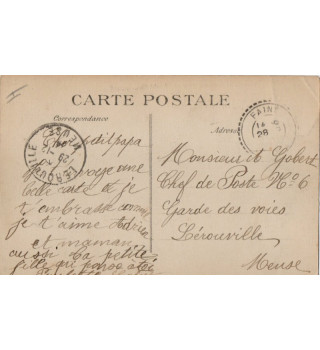 CARTE POSTALE
Correspondance
Adresse
petit papa
une
belle carte je
t'embrasse comme
je t'aime
et maman
aussi ta petite
fille qui
LEROUVILLE
MEUSE
Monsieur Gobert
Chef de Poste No 6
Garde des voies
Lérouville
Meuse